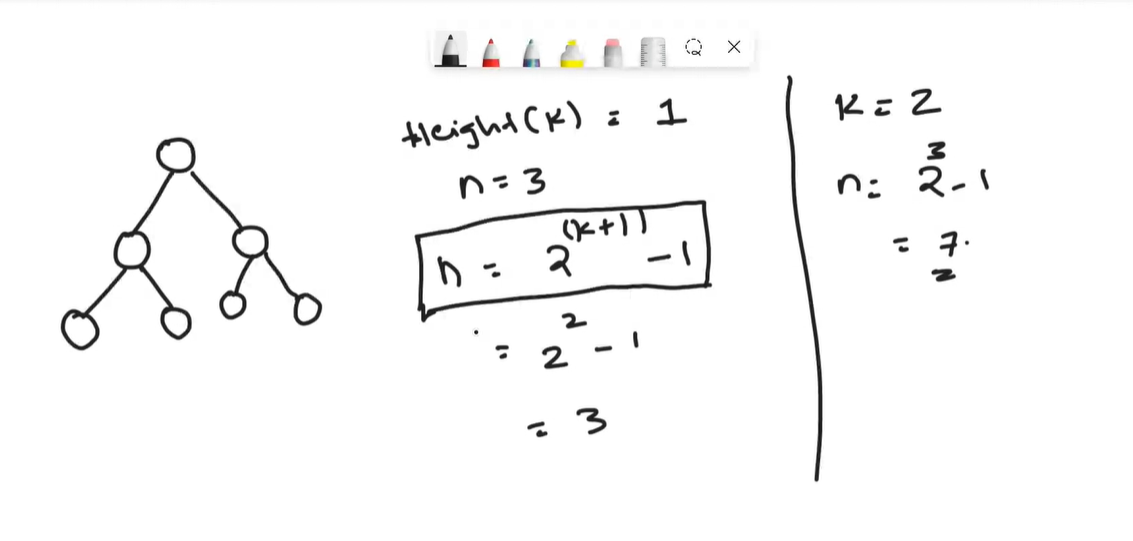 Height(K) = 1
n = 3
n = 2^(k+1) - 1
= 2^2 - 1
= 3
K = 2
n = 2^3 - 1
= 7.